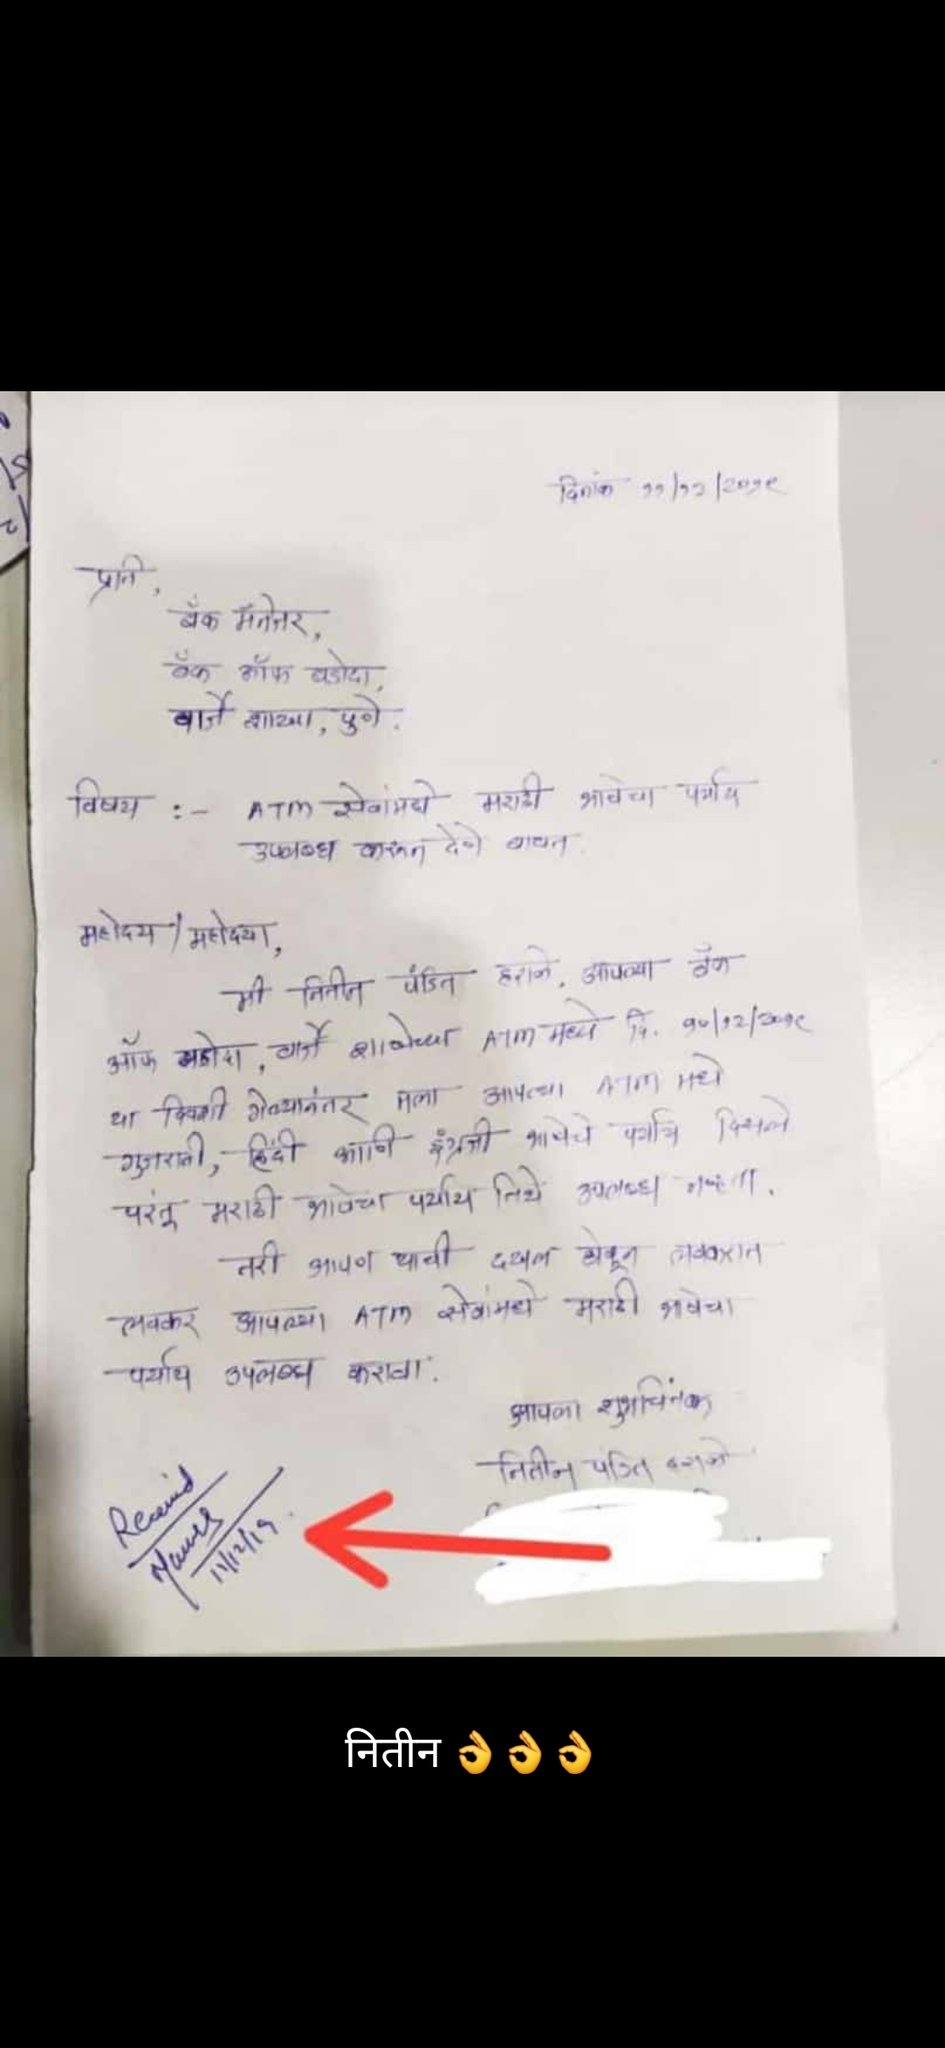 दिनांक ११/१२/२०१९
प्रति,
बँक मॅनेजर,
बँक ऑफ बडोदा,
वार्जे शाखा, पुणे.
विषय :- ATM सेवांमध्ये मराठी भाषेचा पर्याय
उपलब्ध करून देणे बाबत.
महोदय / महोदया,
मी नितीन पंडित, आपल्या बँक
ऑफ बडोदा, वार्जे शाखेच्या ATM मध्ये दि. १०/१२/२०१९
या दिवशी गेल्यानंतर मला आपल्या ATM मधे
गुजराती, हिंदी आणि इंग्रजी भाषेचे पर्याय दिसले
परंतू मराठी भाषेचा पर्याय तिथे उपलब्ध नव्हता.
तरी आपण याची दखल घेवून लवकरात
लवकर आपल्या ATM सेवांमध्ये मराठी भाषेचा
पर्याय उपलब्ध करावा.
आपला शुभचिंतक
नितीन पंडित
Received
11/12/19
नितीन 👌👌👌